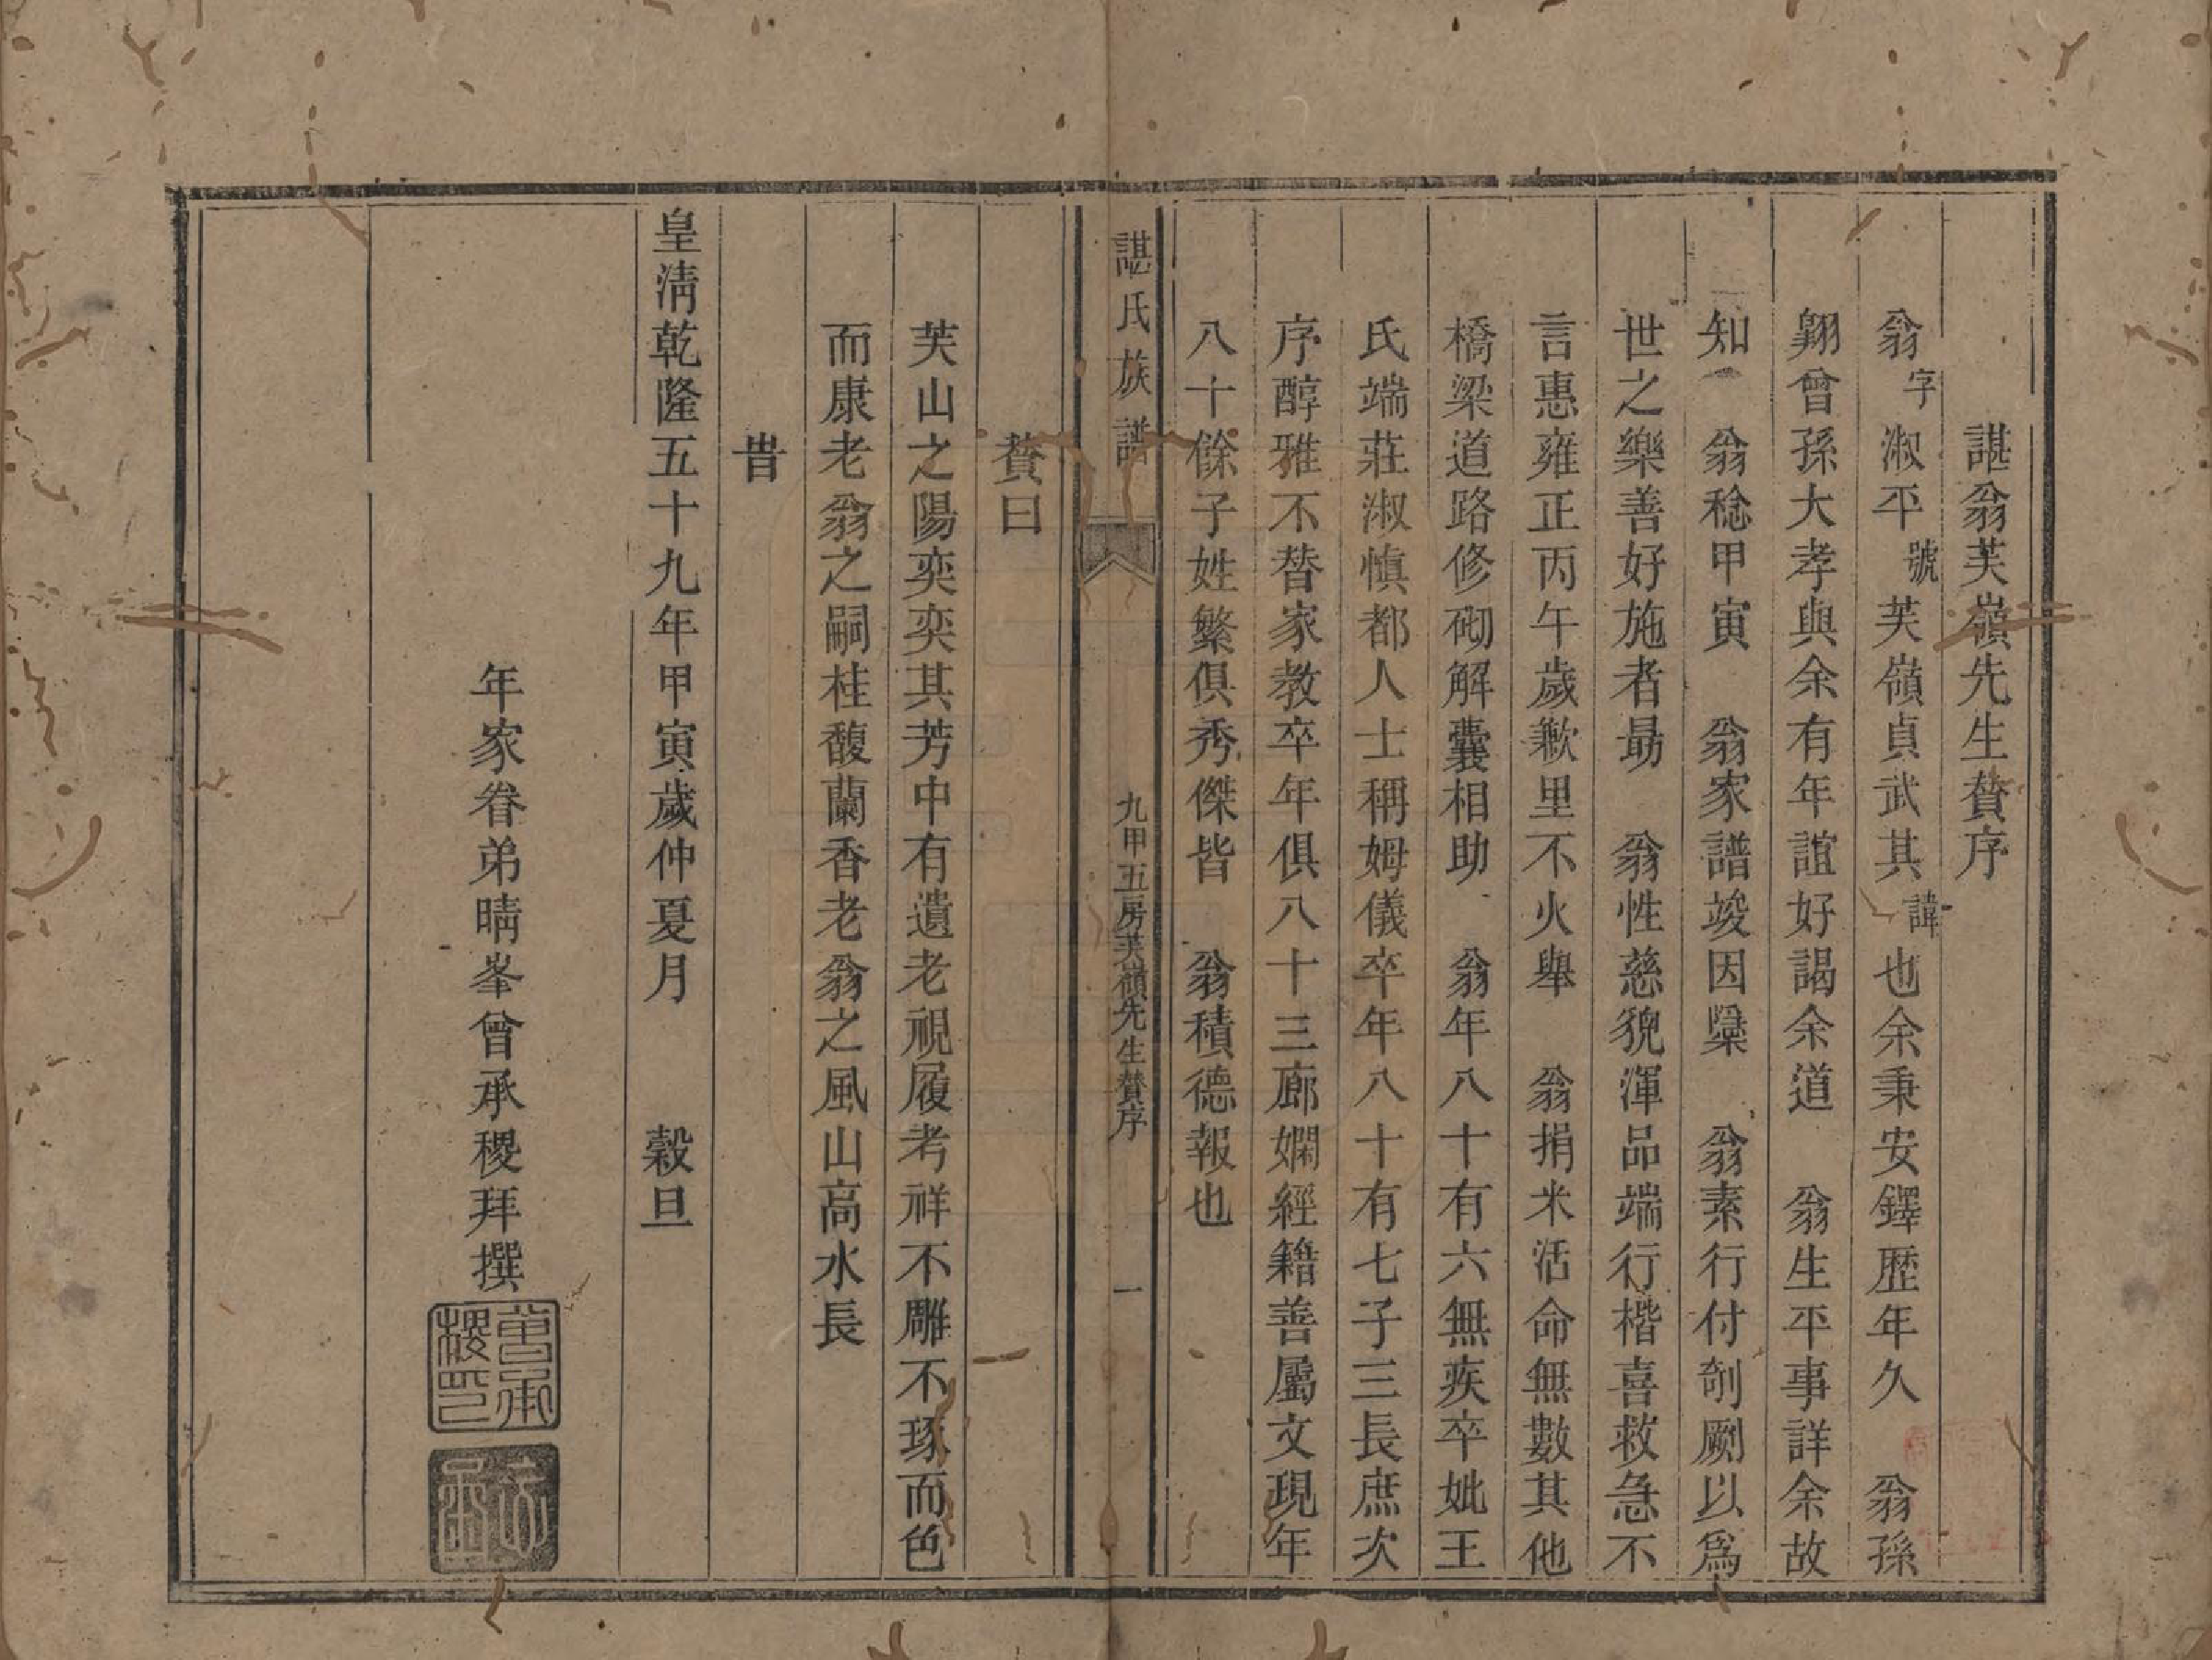 諶翁芙嶺先生贊序
翁字淑平號芙嶺貞武其諱也余秉安鐸歷年久　翁孫
翺曾孫大孝與余有年誼好謁余道　翁生平事詳余故
知　翁稔甲寅　翁家譜竣因櫽　翁素行付剞劂以爲
世之樂善好施者勗　翁性慈貌渾品端行楷喜救急不
言惠雍正丙午歲歉里不火舉　翁捐米活命無數其他
橋梁道路修砌解囊相助　翁年八十有六無疾卒妣王
氏端莊淑慎都人士稱姆儀卒年八十有七子三長庶次
序醇雅不替家教卒年俱八十三廊嫻經籍善屬文現年
八十餘子姓繁俱秀傑皆　翁積德報也
諶氏族譜　九甲五房芙嶺先生贊序　一
贊曰
芙山之陽奕奕其芳中有遺老視履考祥不雕不琢而色
而康老翁之嗣桂馥蘭香老翁之風山高水長
旹
皇清乾隆五十九年甲寅歲仲夏月　穀旦
年家眷弟晴峯曾承稷拜撰
曾承稷印